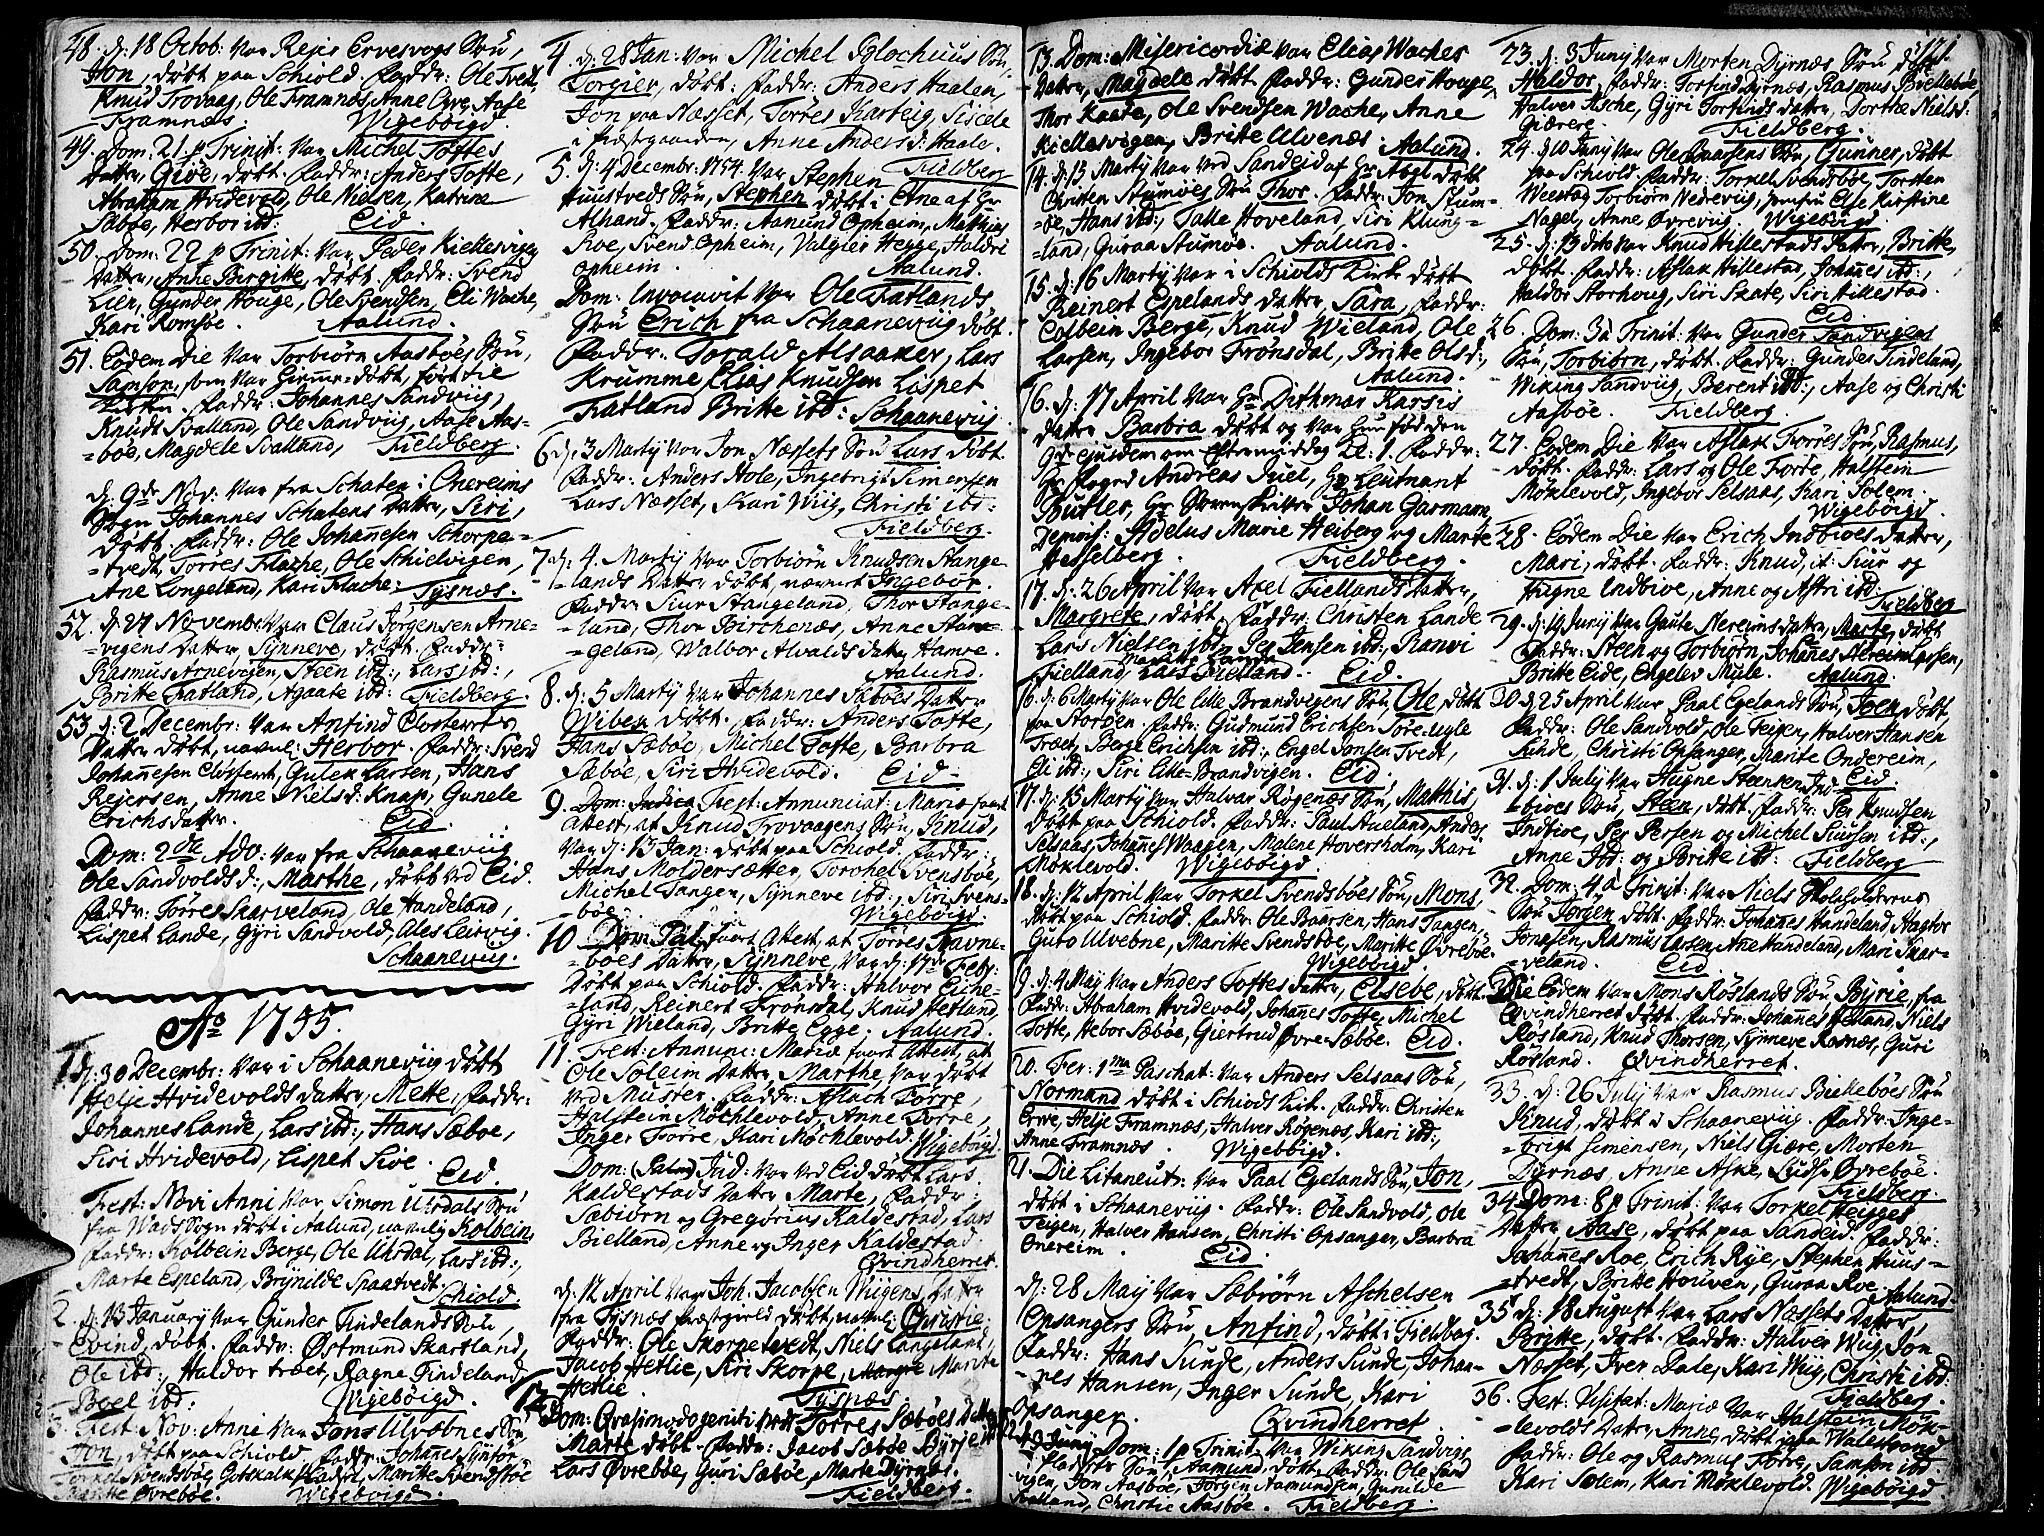 48. d: 18 Octob: var Rejer Ervesvogs Søn,
Jon, døbt paa Schiold. Faddr: Ole Tvedt,
Knud Trovaag, Ole Framnæs, Anne Øvre, Aase
Framnæs. Wigebøigd.
49. Dom: 21. p Trinit: var Michel Toftes
datter, Giöe, døbt. Faddr: Anders Tofte,
Abraham Hvidevold, Ole Nielsen, Katrine
Sæbøe, Herbor ibd: Eid.
50. Dom: 22 p Trinit: var Peder Kiellesvigen
datter, Anne Birgitte, døbt. Faddr: Svend
Lien, Gunder Houge, Ole Svendsen, Eli Wache,
Kari Romsøe. Aalund.
51. Eodem Die var Torbiørn Aasbøes Søn,
Samson, som var hiemme-døbt, ført til
Kirken. Faddr: Johannes Sandviig,
Knudt Svalland, Ole Sandviig, Aase Aas-
=bøe, Magdele Svalland, Fieldberg.
d. 9de Nov: var fra Schaten i Onereims
Sogn Johannes Schatens datter, Siri,
døbt. Faddr: Ole Johannesen Schorpe-
=tvedt, Torres Flache, Ole Schielvigen,
Ane Longeland, Kari Flache. Tysnæs.
52. d: 24 Novembr: var Claus Jørgensen Arne-
=vigens datter, Synneve, døbt. Faddr:
Rasmus Arnevigen, Steen ibd:, Lars ibd:,
Britte Fatland, Agaate ibd: Fieldberg.
53. d: 2 Decembr: var Anfind Closters
datter døbt, navnl: Herbor. Faddr: Svend
Johannesen Closter, Gulek Larsen, Hans
Rejersen, Anne Nielsd: Knap, Gunele
Erichsdatter. Eid.
Dom: 2de Adv: var fra Schaaneviig
Ole Sandvolds d:, Marthe, døbt ved Eid.
Faddr: Tørres Skarveland, Ole Handeland,
Lispet Lande, Gyri Sandvold, Ales Leirvig.
Schaaneviig.
Ao 1755.
1. d: 30 Decembr: var i Schaaneviig døbt
Helje Hvidevolds datter, Mette, Faddr:
Johannes Lande, Lars ibd:, Hans Sæbøe,
Siri Hvidevold, Lispet Siøe. Eid.
Fest: Novi Anni var Simon Uhrdals Søn
fra Wads Sogn døbt i Aalund, navnlig Kolbein,
Faddr: Kolbein Berge, Ole Uhrdal, Lars ibd:,
Marte Espeland, Brynilde Spaatvedt. Schiold.
2. d: 13 January var Gunder Tindelands Søn,
Evind, døbt. Faddr: Østmund Skartland,
Ole ibd:, Haldor træet, Ragne Tindeland,
Boel ibd: Wigebøigd.
3. Fest: Nov: Anni var Jons Ulvebnes Søn
Jon, døbt paa Schiold. Faddr: Johannes
Torkel Svendsbøe, Gotskalk, Maritte Svendsbøe
Maritte Øvrebøe. Wigebøigd.
4. d: 28 Jan: var Michel Sglochuus Søn,
Torgier, døbt: Faddr: Anders Haalen,
Jon paa Næsset, Torres Karteig, Siscele
i Prestgaarden, Anne Anders d: Haale.
Fieldberg
5. d: 4 Decembr: 1754 var Stephen
Huustveds Søn, Stephen døbt i Etne af Hr
Alhand. Faddr: Aamund Opheim, Mathias
Roe, Svend Opheim, Valgier Hegge, Haldri
Opheim. Aalund.
Dom: Invocavit var Ole Fatlands
Søn Erich fra Schaaneviig døbt.
Faddr: Torald Alsaaker, Lars
Krumme, Elias Knudsen, Lispet
Fatland, Britte ibd: Schaaneviig
6. d: 3 Marty var Jon Næssets Søn Lars døbt.
Faddr: Anders Hole, Ingebrigt Simensen
Lars Næsset, Kari Wiig, Christi ibd:
Fieldberg.
7. d: 4. Marty var Torbiørn Knudsen Stange-
lands datter døbt, nævnt Ingebor.
Faddr: Siur Stangeland, Thor Stange-
=land, Thor Birchenæs, Anne Stan-
=geland, Walbor Alvalds datter Hamre.
Aalund.
8. d: 5 Marty var Johannes Sæbøes datter
Wiben døbt. Faddr: Anders Tofte,
Hans Sæbøe, Michel Tofte, Barbra
Sæbøe, Siri Hvidevold. Eid.
9. Fest: Annunciat: Mariæ faaet
Attest, at Knud Trovaagens Søn, Knud,
var d: 13 Jan: døbt paa Schiold. Faddr:
Hans Moldersætter, Torchel Svensbøe,
Michel Tangen, Synneve ibd:, Siri Svens-
bøe. Wigebøigd.
10. Dom: Pal: faaet Attest, at Tørres Ravne-
=bøes datter, Synneve, var d: 17de Febr:
døbt paa Schiold. Faddr: Halvor Eiche-
=land, Reinert Frønsdal, Knud Hetland,
Gyri Wieland, Britte Egge. Aalund.
11. Fest: Annunc: Mariæ faaet Attest, at
Ole Soleim datter Marthe, var døbt
ved Muster. Faddr: Aslach Torre,
Halstein Möchlevold, Anne Torre,
Inger Torre, Kari Möchlevold. Wigebøigd.
Dom: Jud: var ved Eid døbt Lars
Kaldestads datter Marte. Faddr:
Sæbiørn og Gregorius Kaldestad, Lars
Bielland, Anne og Inger Kaldestad.
Qvindherret.
d: 12 April var Joh: Jacobsen Wiigens datter
fra Tysnæs Præstegield døbt, navnl: Christie.
Faddr: Ole Skorpetvedt, Niels Langeland,
Jacob Hetlie, Siri Skorpe, Maritte
Hetlie. Tysnæs
12. Dom: Qvasimodogeniti var Torres Sæbøes datter
Marte døbt. Faddr: Jacob Sæbøe,
Lars Øvrebøe, Guri Sæbøe, Marte Dyrnæs.
Fieldberg.
13. Dom: Misericordiæ var Elias Waches
datter, Magdele døbt. Faddr: Gunder Houge,
Thor Kaate, Ole Svendsen Wache, Anne
Kiellesvigen, Britte Ulvenæs. Aalund.
14. d: 13 Marty var ved Sandeid af Hr Abel døbt
Christen Stumøes Søn Thor. Faddr: Jon Stum-
=øe, Hans ibd:, Salle Hoveland, Siri Klung-
=land, Guraa Stumøe. Aalund.
15. d: 16 Marty var i Schiolds Kirke døbt
Reinert Espelands datter Sara. Faddr:
Colbein Berge, Knud Wieland, Ole
Larsen, Ingebor Frønsdal, Britte Olsd:,
Aalund.
16. d: 17 April var Hr Dithmar Karsis
datter Barbra døbt og var hun fødden
9de ejusdem om Eftermiddag Cl: 1. Faddr:
Hr Foged Andreas Juel, Hr Leutnant
Butler, Hr Sorenskriver Johan Garmann,
Demois: Adelus Marie Heiberg og Marte
Hasselberg. Fieldberg.
17. d: 26 April var Axel Fiellands datter,
Margrete, døbt. Faddr: Christen Lande
Lars Nielsen ibd:, Per Jensen ibd:, Ranvi
Fielland, Lars Fielland. Eid.
16. d: 6 Marty var Ole Lille Brandvigens Søn, Ole, døbt
paa Storøen. Faddr: Gudmund Erichsen Søre-ugle
Træet, Berge Erichsen ibd:, Engel Jonsen Tvedt,
Eli ibd:, Siri Lille-Brandvigen. Eid.
17. d: 15 Marty var Halvar Røgenæs Søn, Matthis,
døbt paa Schiold. Faddr: Paul Aueland, Anders
Selsaas, Johannes Waagen, Malene Hoversholm, Kari
Möklevold. Wigebøigd.
18. d: 12 April var Torkel Svendsbøes Søn, Mons,
døbt paa Schiold. Faddr: Ole Baarsen, Hans Tangen,
Guro Ulvebne, Maritte Svendsbøe, Maritte Øvrebøe.
Wigebøigd.
19. d: 4 May var Anders Toftes datter, Elsebe, døbt.
Faddr: Abraham Hvidevold, Johannes Tofte, Michel
Tofte, Hebor Sæbøe, Giertrud Øvre-Sæbøe. Eid.
20. Fer: 1ma Paschat: var Anders Selsaas Søn,
Normand døbt i Schiolds Kirk. Faddr: Christen
Erve, Helje Framnæs, Halver Røgenæs, Kari ibd:,
Anne Framnæs. Wigebøigd.
21. Die Litaneut: var Paal Egelands Søn, Jon,
døbt i Schaaneviig. Faddr: Ole Sandvold, Ole
Teigen, Halver Hansen, Christi Opsanger, Barbra
Onereim. Eid
d: 28 May var Sæbiørn Aschelsen
Opsangers Søn, Anfind, døbt i Fieldberg.
Faddr: Hans Sunde, Anders Sunde, Johan-
=nes Hansen, Inger Sunde, Kari
Opsanger. Qvindherret
22. Dom: 1 p Trinit: var Wiking Sandvigs
Søn, Aamund, døbt. Faddr: Ole Sand
vigen, Jon Aasbøe, Jørgen Aamundsen, Gunilde
Svalland, Christie Aasbøe. Fieldberg.
171.
23. d: 3 Juny var Morten Dyrnæs Søn døbt
Haldor. Faddr: Torfind Dyrnæs, Rasmus Biellebøe,
Halver Asche, Gyri Torfinds datter, Dorthe Nielsd:
Giærere. Fieldberg.
24. d: 10 Juny var Ole Baarsens Søn, Gunner, døbt
paa Schiold. Faddr: Torkel Svendsbøe, Torsten
Weestog, Torbiørn Nedrevig, Jomfru Else Kirstine
Nagel, Anne Øvrevig. Wigebøigd
25. d: 13 dito var Knud Hillestads datter, Britte,
døbt. Faddr: Aslak Hillestad, Johannes ibd:,
Haldor Storhoug, Siri Skate, Siri Hillestad.
Eid
26. Dom: 3a Trinit: var Gunder Sandvigens
Søn, Torbiørn, døbt. Faddr: Gunder Tindeland,
Wiking Sandviig, Berent ibd:, Aase og Christi
Aasbøe. Fieldberg.
27. Eodem Die var Aslak Torres Søn, Rasmus,
døbt. Faddr: Lars og Ole Torre, Halstein
Möklevold, Ingebor Selsaas, Kari Solem.
Wigebøigd.
28. Eodem Die var Erich Indbiøes datter,
Mari, døbt. Faddr: Knud, it: Siur og
Hugne Indbiøe, Anne og Astri ibd:
Fieldberg
29. d: 19 Juny var Gaute Nereims datter, Marte, døbt
Faddr: Steen og Torbiørn, Johannes Nereim Larsen,
Britte Eide, Engelev Mule. Aalund.
30. d: 25 April var Paal Egelands Søn, Joen, døbt,
Faddr: Ole Sandvold, Ole Teigen, Halver Hansen
Sunde, Christi Opsanger, Marite Ondereim,
Eid.
31. d: 1 July var Hugne Steensen Ind-
=biøes Søn, Steen, døbt. Faddr: Per Knudsen
Indbiøe, Per Persen og Michel Siursen ibd:,
Anne Ibd: og Britte ibd: Fieldberg
32. Dom: 4 a Trinit: var Niels Skoleholderens
Søn Jørgen døbt. Faddr: Johannes Handeland, Hagtor
Jonasen, Rasmus Larsen, Ane Handeland, Mari Skar-
=veland. Eid.
Die Eodem var Mons Røslands Søn, Byrie, fra
Qvindherret døbt. Faddr: Johannes Hetland, Niels
Røsland, Knud Thorsen, Synneve Ranæs, Guri
Røsland. Qvindherret.
33. d: 26 July var Rasmus Biellebøes Søn
Knud, døbt i Schaaneviig. Faddr: Inge-
=brigt Simensen, Niels Giære, Morten
Dyrnæs, Anne Aske, Ludse Øvrebøe.
Fieldberg.
34. Dom: 8 p Trinit: var Torkel Hegges
datter, Aase, døbt paa Sandeid. Faddr:
Johannes Roe, Erich Rye, Stephen Huus-
=tvedt, Britte Houven, Guraa Roe. Aalund.
35. d: 18 August var Lars Næssets datter,
Britte, døbt. Faddr: Halver Wiig, Jon
Næsset, Iver Dale, Kari Wiig, Christi ibd:
Fieldberg.
36. Fest: Visitat: Mariæ var Halstein Møk-
=levolds datter, Anne, døbt paa Walestrand
Faddr: Ole og Rasmus Torre, Samson ibd:
Kari Sælem, Kari Möklevold. Wigebøigd.